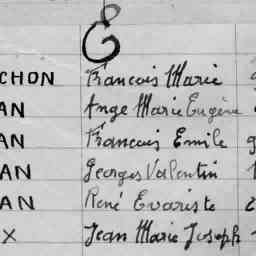 G
CHON François Marie
AN Ange Marie Eugène
AN Francois Emile
AN Georges Valentin
AN René Evariste
X Jean Marie Joseph